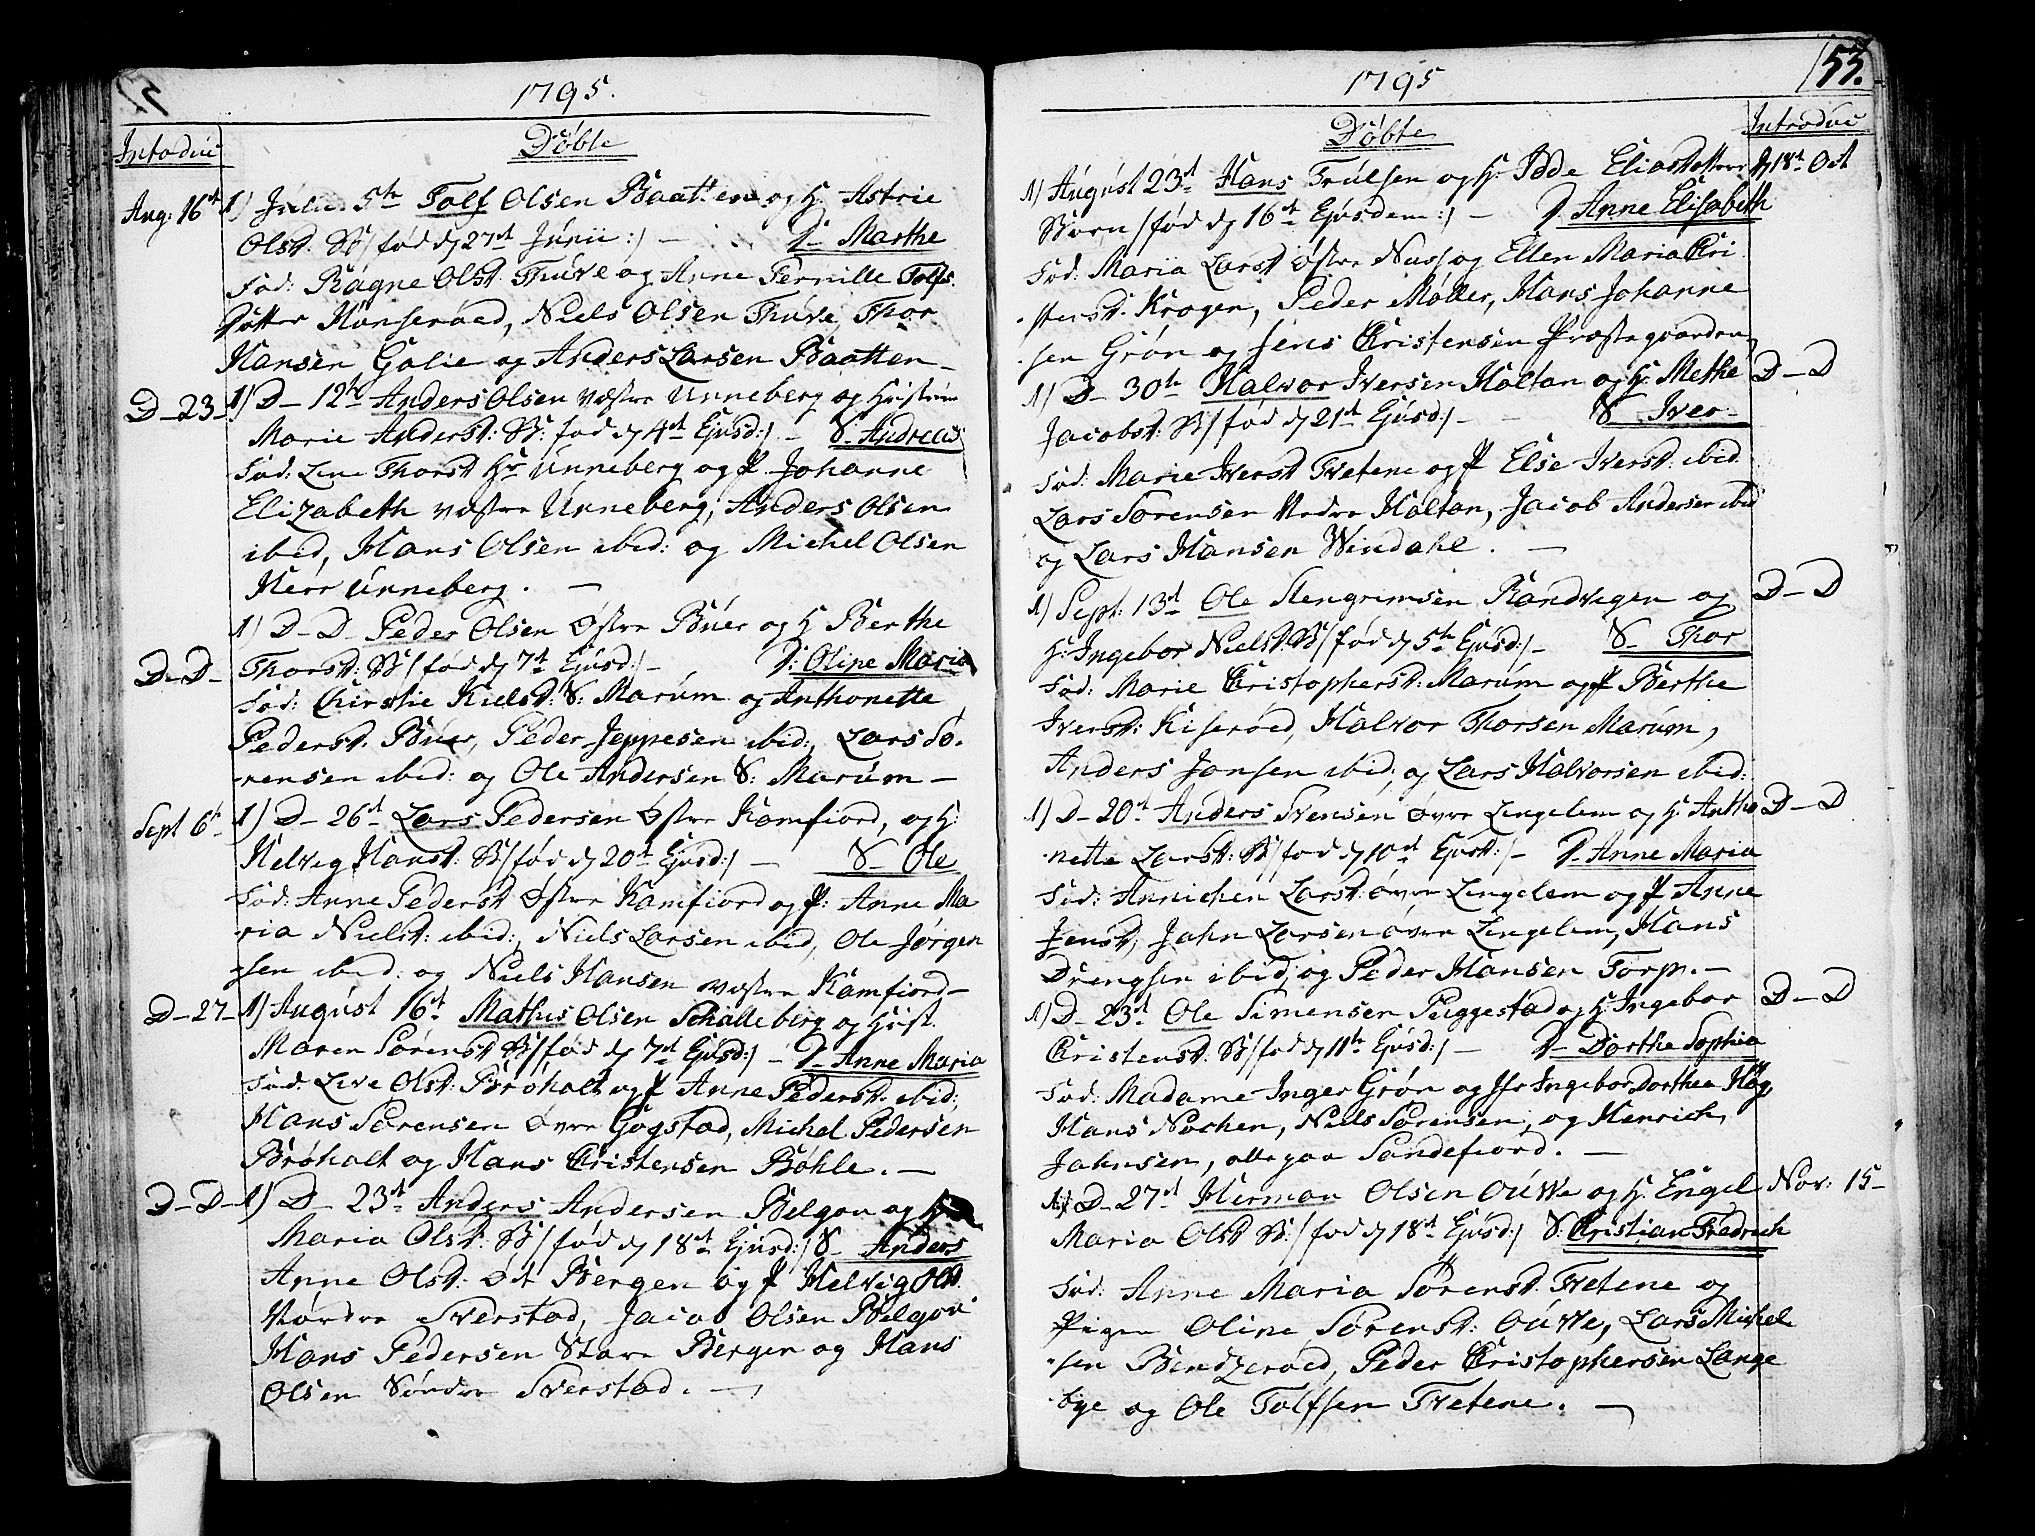 1795.
Introduc
Döbte
Aug: 16de 1) Julii 5te Tolf Olsen Baatten og H. Astrie
Olsd. B/ fød d 27de Junii :/ — D- Marthe
Fad: Ragne Olsd. Thuve og Anne Pernille Tolfs
Dotter Hunseroed, Niels Olsen Thuve, Thor
Hansen Galie og Anders Larsen Baatten —
D-23- 1) D- 12te Anders Olsen vestre Unneberg og Hustru
Marie Andersd: B: fød d 4de Ejusd:/ — S. Andreas
Fad: Line Thorsd Hr Unneberg og P. Johanne
Elizabeth vestre Unneberg, Anders Olsen
ibid, Hans Olsen ibid: og Michel Olsen
Herr Unneberg. —
1) D-D- Peder Olsen Østre Buer og H Berthe
D-D- Thorsd: B/ fød d 7de Ejusd:/ — D: Oline Maria
Fad: Chirstie Kielsd: S: Marum og Anthonette
Pedersd. Buer, Peder Jeppesen ibid:, Lars Sö-
-rensen ibid: og Ole Andersen S: Marum —
Sept 6te 1) D- 26de Lars Pedersen Østre Kamfiord, og H:
Helvig Hansd: B/ fød d 20de Ejusd:/ — S- Ole
Fad: Anne Pedersd. Østre Kamfiord og P: Anne Ma
-ria Nielsd: ibid:, Niels Larsen ibid, Ole Jørgen
-sen ibid: og Niels Hansen vestre Kamfiord —
D-27- 1) August 16de Mathis Olsen Schalleberg og Hust.
Maren Sørensd B/ fød d 7de Ejusd:/ — D- Anne Maria
Fad: Live Olsd: Bröholt og P Anne Pedersd. ibid;
Hans Sörensen Øvre Gogstad, Michel Pedersen
Bröholt og Hans Christensen Böhle. —
D-D- 1) D- 23de Anders Andersen Belgou og H
Maria Olsd: B/ fød d 18de Ejusd:/ S- Anders
Anne Olsd: Bergen og P Helvig
Nordre Sverstad, Jacob Olsen Belgou
Hans Pedersen Store Bergen og Hans
Olsen Söndre Sverstad. —
1795
53.
Döbte
Introduc
1) August 23de Hans Trulsen og H: Idde Eliasdotter d 18de Oct
Worn /fød d 16de Ejusdem:/ — D. Anne Elisabeth
Fad: Maria Larsd Østre Nus og Ellen Maria Chri
-stensd. Krogen, Peder Møller, Hans Johanne
-sen Grøn og Jens Christensen Præstegaarden,
1) D- 30te Halvor Iversen Holtan og H: Methe D-D
Jacobsd: B/ fød d 21de Ejusd:/ — S- Iver —
Fad: Marie Iversd Tvetene og P Else Iversd: ibid
Lars Sørensen Nedre Holtan, Jacob Andersen ibid
og Lars Hansen Windahl. —
1) Sept: 13de Ole Stengrimsen Randvigen og D-D
H: Ingebor Nielsd: B/ fød d 5te Ejusd:/ — S- Thor
Fad: Marie Christophersd: Marum og P Berthe
Iversd: Kiseroed, Halvor Thorsen Marum,
Anders Jansen ibid; og Lars Halvorsen ibid:
1) D- 20de Anders Svensen Øvre Lingelem og H: Antho D-D
-nette Larsd: B/ fød d 10de Ejusd:/ — D- Anne Maria
Fad: Annichen Larsd: Øvre Lingelem og P Anne
Jensd, Jahn Larsen Øvre Lingelem, Hans
Drengsen ibid, og Peder Hansen Torp. —
1) D- 23de Ole Simensen Puggestad og H: Ingebor D-D
Christensd. B/ fød d 11te Ejusd:/ — D- Dorthe Sophia
Fad: Madame Inger Grön og Jfr Ingebor Dorthea Høg,
Hans Nochen, Niels Sörensen, og Henrich
Jahnsen, alle paa Sandefiord. —
1) D- 27de Herman Olsen Ouwe og H: Engel Nov: 15-
Maria Olsd B:/ fød d 18de Ejusd:/ S: Christian Fredrich
Fad: Anne Maria Sörensd. Tvetene og
Pigen Oline Sörensd: Ouwe, Lars Michel
-sen Bendzeroed, Peder Christophersen Lange
-bye og Ole Tolfsen Tvetene. —